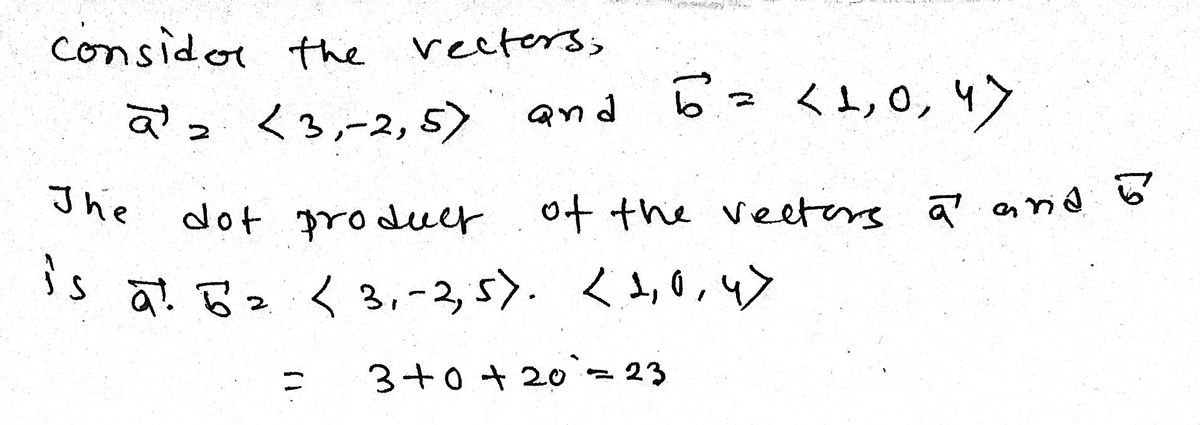 consider the vectors,
a⃗ = <3,-2,5> and b⃗ = <1,0,4>
The dot product of the vectors a⃗ and b⃗
is a⃗. b⃗ = <3,-2,5>. <1,0,4>
= 3+0+20 = 23